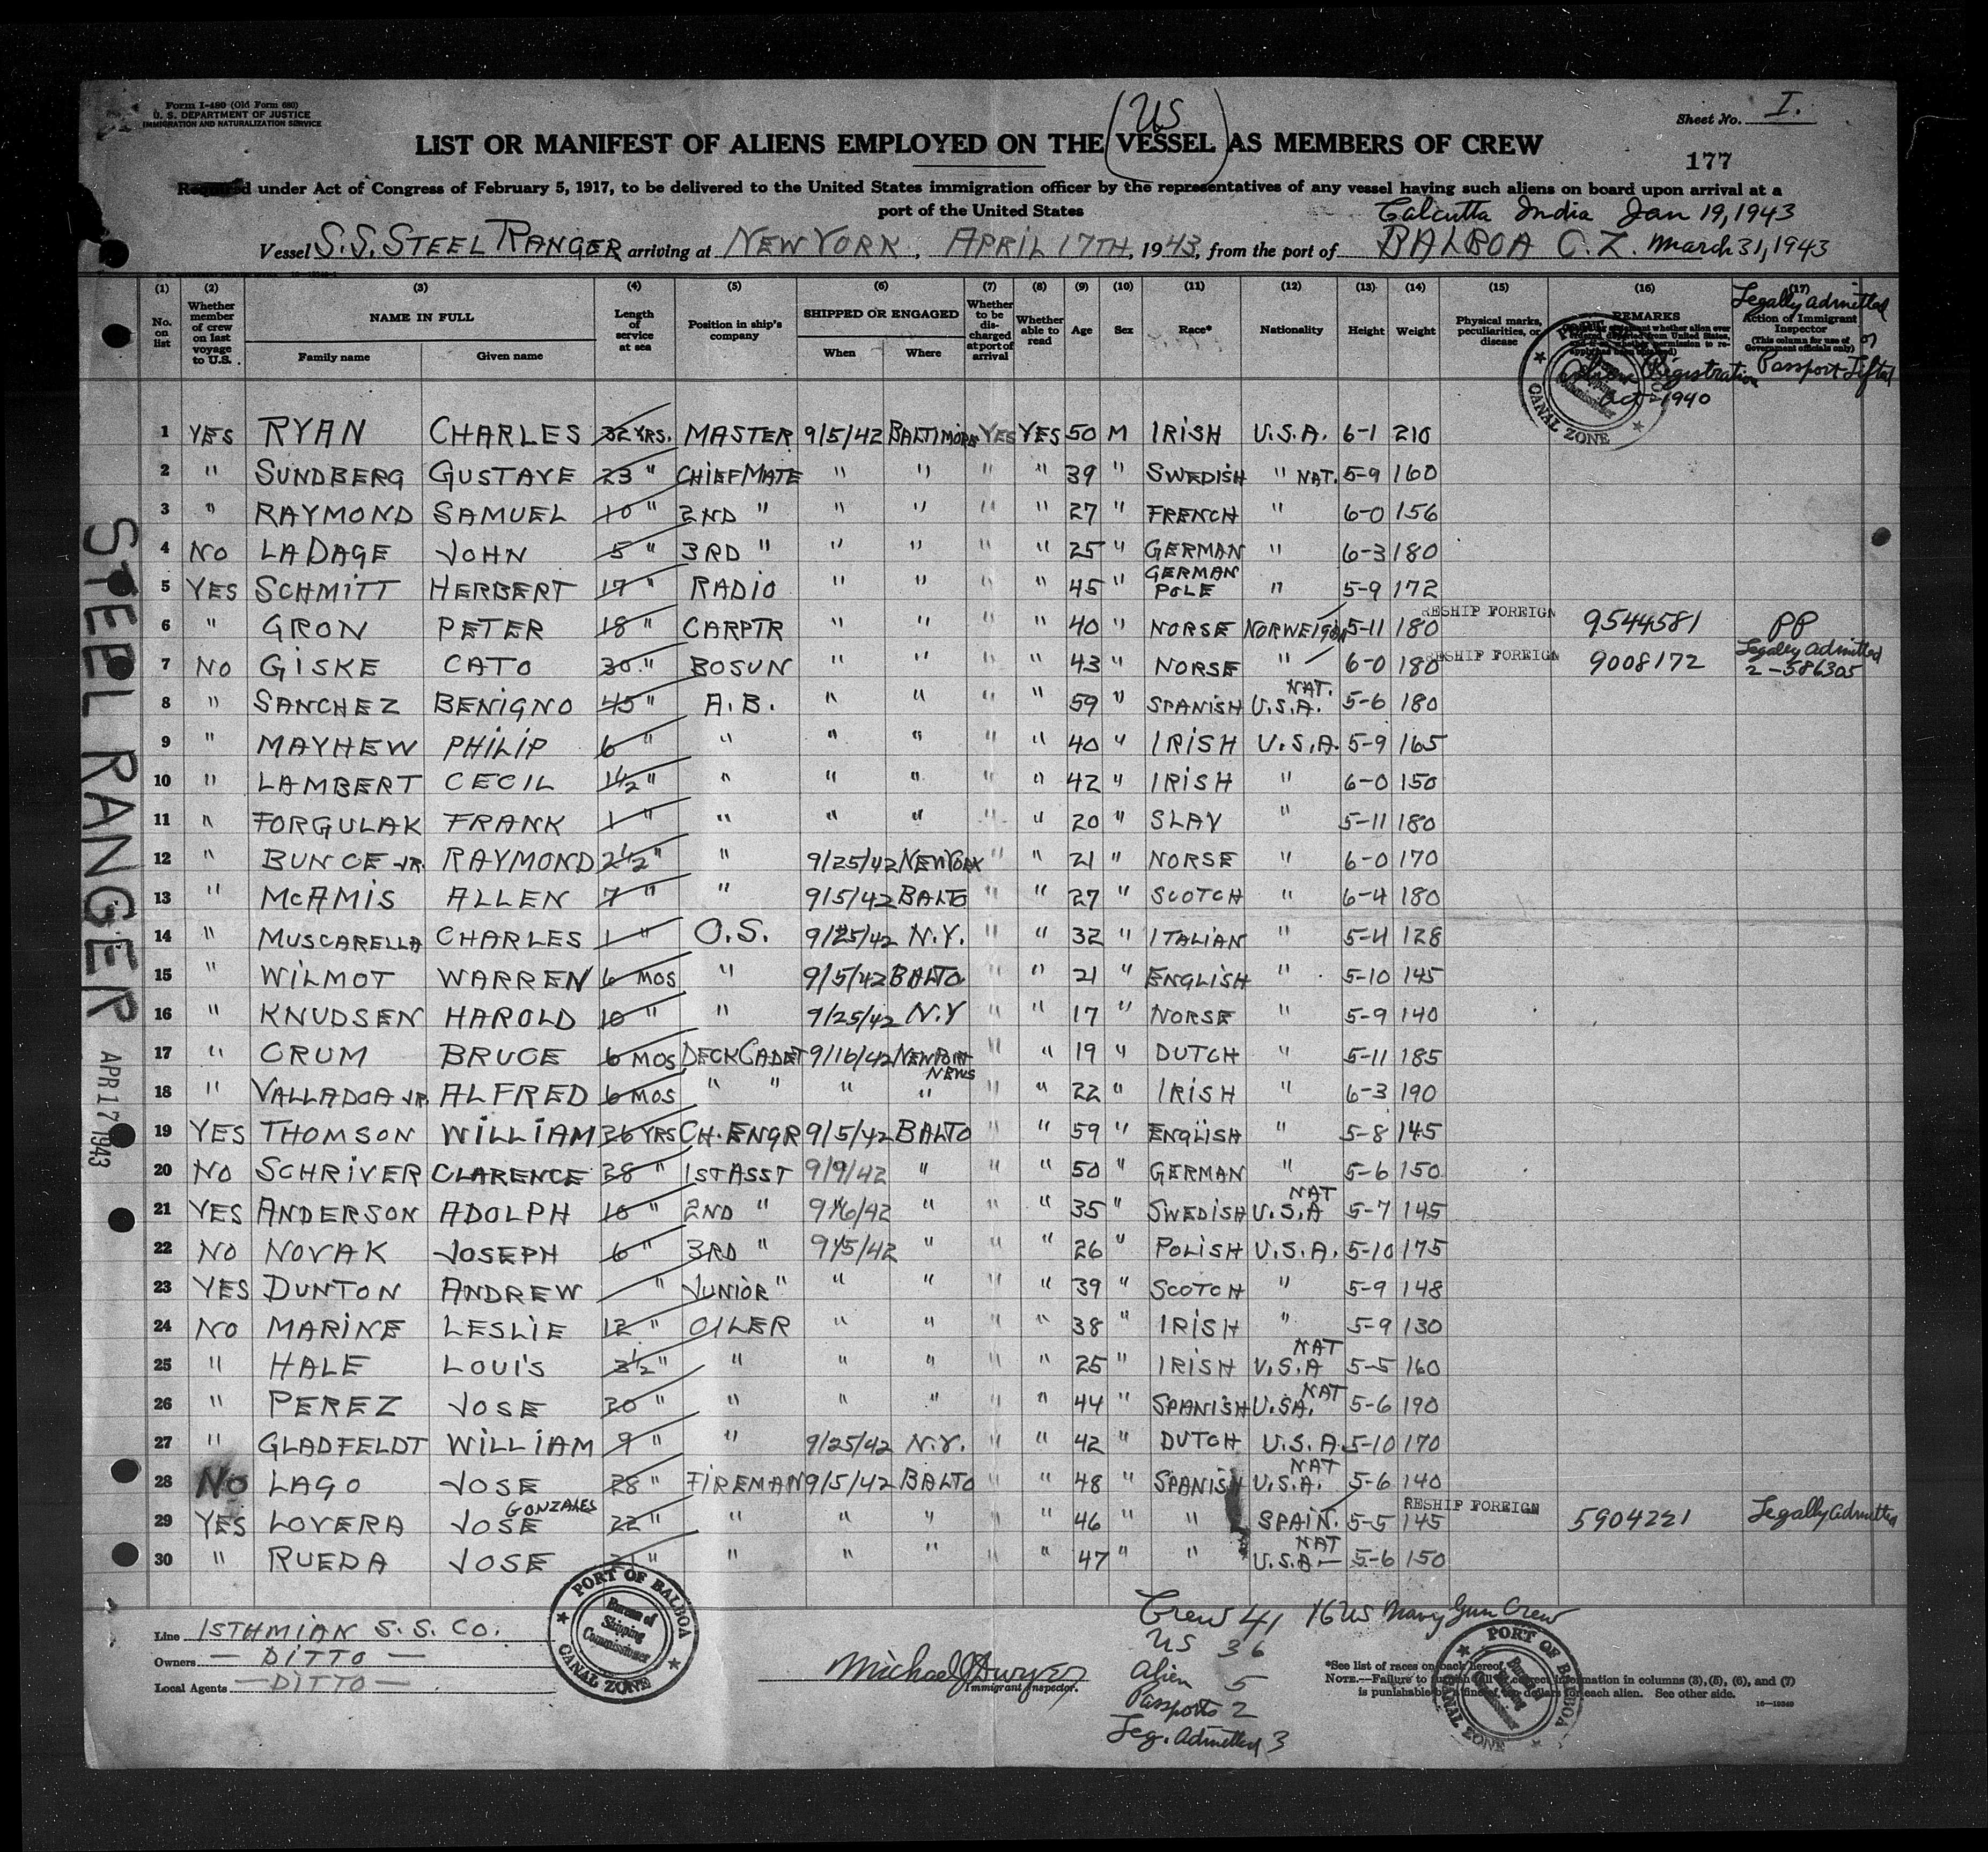 Form I-480 (Old Form 680)
U. S. DEPARTMENT OF JUSTICE
IMMIGRATION AND NATURALIZATION SERVICE
Sheet No. I.
177
US
LIST OR MANIFEST OF ALIENS EMPLOYED ON THE (VESSEL) AS MEMBERS OF CREW
Required under Act of Congress of February 5, 1917, to be delivered to the United States immigration officer by the representatives of any vessel having such aliens on board upon arrival at a
port of the United States
Calcutta India Jan 19, 1943
Vessel S.S. STEEL RANGER arriving at NEW YORK, APRIL 17TH, 1943, from the port of BALBOA C.Z. March 31, 1943
(1) (2) (3) (4) (5) (6) (7) (8) (9) (10) (11) (12) (13) (14) (15) (16) (17)
No. on list
Whether member of crew on last voyage to U.S.
NAME IN FULL
Family name
Given name
Length of service at sea
Position in ship's company
SHIPPED OR ENGAGED
When
Where
Whether to be discharged at port of arrival
Whether able to read
Age
Sex
Race*
Nationality
Height
Weight
Physical marks, peculiarities, or disease
REMARKS
Alien Registration
Oct 1940
Action of Immigrant Inspector
(This column for use of Government officials only)
Legally admitted
or
Passport Lifted
1 YES RYAN CHARLES 32 YRS. MASTER 9/5/42 BALTIMORE YES YES 50 M IRISH U.S.A. 6-1 210
2 " SUNDBERG GUSTAVE 23 " CHIEF MATE " " " " 39 " SWEDISH " NAT. 5-9 160
3 " RAYMOND SAMUEL 10 " 2ND " " " " " 27 " FRENCH " 6-0 156
4 NO LADAGE JOHN 5 " 3RD " " " " " 25 " GERMAN " 6-3 180
5 YES SCHMITT HERBERT 17 " RADIO " " " " 45 " GERMAN POLE " 5-9 172
6 " GRON PETER 18 " CARPTR " " " " 40 " NORSE NORWEIGAN 5-11 180 RESHIP FOREIGN 9544581 PP
7 NO GISKE CATO 30 " BOSUN " " " " 43 " NORSE " 6-0 180 RESHIP FOREIGN 9008172 Legally admitted 2-586305
8 " SANCHEZ BENIGNO 45 " A.B. " " " " 59 " SPANISH U.S.A. NAT. 5-6 180
9 " MAYHEW PHILIP 6 " " " " " " 40 " IRISH U.S.A. 5-9 165
10 " LAMBERT CECIL 1 1/2 " " " " " " 42 " IRISH " 6-0 150
11 " FORGULAK FRANK 1 " " " " " " 20 " SLAV " 5-11 180
12 " BUNCE JR. RAYMOND 2 1/2 " " 9/25/42 NEW YORK " " 21 " NORSE " 6-0 170
13 " MCAMIS ALLEN 7 " " 9/5/42 BALTO " " 27 " SCOTCH " 6-4 180
14 " MUSCARELLA CHARLES 1 " O.S. 9/25/42 N.Y. " " 32 " ITALIAN " 5-4 128
15 " WILMOT WARREN 6 MOS " 9/5/42 BALTO " " 21 " ENGLISH " 5-10 145
16 " KNUDSEN HAROLD 10 " " 9/25/42 N.Y " " 17 " NORSE " 5-9 140
17 " CRUM BRUCE 6 MOS DECK CADET 9/16/42 NEWPORT NEWS " " 19 " DUTCH " 5-11 185
18 " VALLADOA JR. ALFRED 6 MOS " " " " " " 22 " IRISH " 6-3 190
19 YES THOMSON WILLIAM 36 YRS CH. ENGR 9/5/42 BALTO " " 59 " ENGLISH " 5-8 145
20 NO SCHRIVER CLARENCE 28 " 1ST ASST 9/9/42 " " " 50 " GERMAN " 5-6 150
21 YES ANDERSON ADOLPH 16 " 2ND " " " " 35 " SWEDISH U.S.A NAT 5-7 145
22 NO NOVAK JOSEPH 6 " 3RD " " " " 26 " POLISH U.S.A. 5-10 175
23 YES DUNTON ANDREW " JUNIOR " " " " " 39 " SCOTCH " 5-9 148
24 NO MARINE LESLIE 12 " OILER " " " " 38 " IRISH " 5-9 130
25 " HALE LOUIS 3 1/2 " " " " " " 25 " IRISH U.S.A NAT 5-5 160
26 " PEREZ JOSE 30 " " " " " " 44 " SPANISH U.S.A. NAT 5-6 190
27 " GLADFELDT WILLIAM 9 " " 9/25/42 N.Y. " " 42 " DUTCH U.S.A. 5-10 170
28 NO LAGO JOSE 28 " FIREMAN 9/5/42 BALTO " " 48 " SPANISH U.S.A. NAT 5-6 140
29 YES LOVERA JOSE GONZALES 22 " " " " " " 46 " " SPAIN. 5-5 145 RESHIP FOREIGN 5904221 Legally admitted
30 " RUEDA JOSE " " " " " " 47 " " U.S.A. NAT 5-6 150
STEEL RANGER
APR 17 1943
Line ISTHMIAN S.S. CO.
Owners — DITTO —
Local Agents — DITTO —
PORT OF BALBOA
Bureau of Shipping Commissioner
CANAL ZONE
Immigrant Inspector.
Crew 41 16 US Navy Gun Crew
US 36
Alien 5
Passports 2
Leg. Admitted 3
*See list of races on back hereof.
NOTE.—Failure to furnish full or correct information in columns (3), (5), (6), and (7)
is punishable by a fine of ten dollars for each alien. See other side.
PORT OF BALBOA
CANAL ZONE